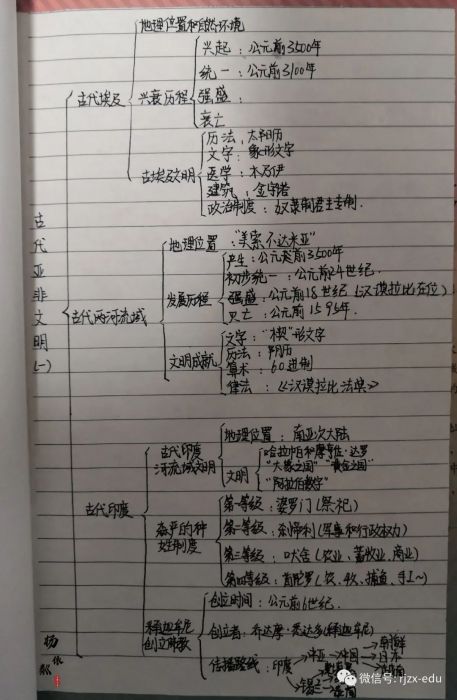 古代亚非文明(一)
古代埃及
地理位置和自然环境
兴衰历程
兴起：公元前3500年
统一：公元前3100年
强盛：
衰亡
古埃及文明
历法：太阳历
文字：象形文字
医学：木乃伊
建筑：金字塔
政治制度：奴隶制君主专制.
古代两河流域
地理位置："美索不达米亚"
发展历程
产生：公元前3500年
初步统一：公元前24世纪.
强盛：公元前18世纪(汉谟拉比在位)
灭亡：公元前1595年.
文明成就
文字："楔"形文字
历法：阴历
算术：60进制
律法：《汉谟拉比法典》
古代印度
古代印度河流域文明
地理位置：南亚次大陆
文明
哈拉帕和摩亨佐·达罗
"大象之国" "黄金之国"
"阿拉伯数字"
森严的种姓制度
第一等级：婆罗门(祭祀)
第二等级：刹帝利(军事和行政权力)
第三等级：吠舍(农业、畜牧业、商业)
第四等级：首陀罗(农、牧、捕渔、手工~)
释迦牟尼创立佛教
创立时间：公元前6世纪.
创立者：乔达摩·悉达多(释迦牟尼)
传播路线：印度
中亚→中国→朝鲜
日本
越南
锡兰
杨
微信号: rjzx-edu